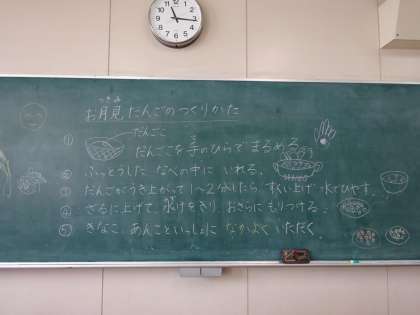 つきみ
お月見だんごのつくりかた
だんご
① だんごを手のひらでまるめる。
② ふっとうした なべの中に いれる。
③ だんごがうき上がって1〜2分したら、すくい上げ 水でひやす。
④ ざるに上げて、水けをきり おさらにもりつける。
⑤ きなこ、あんこといっしょに なかよく いただく。